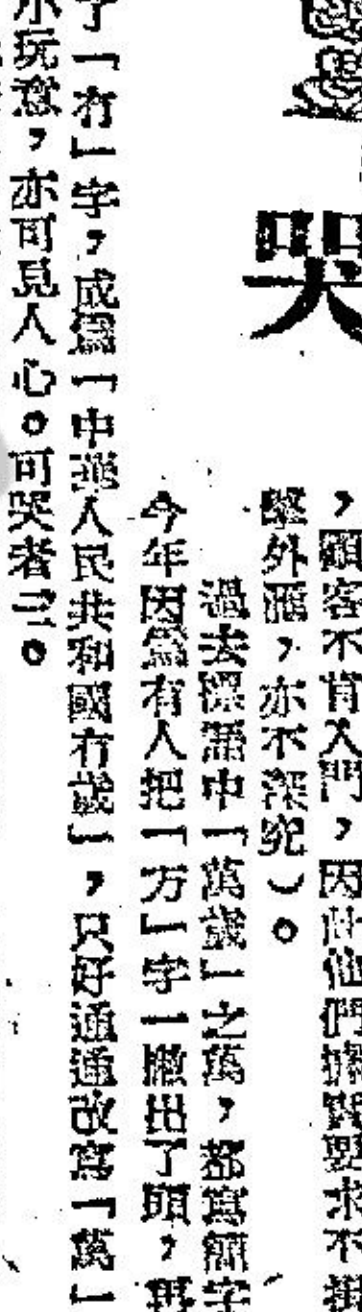 哭
，顧客不肯入門，因此他們
外匯，亦不深究）。
過去標語中「萬歲」之萬，都寫簡字
今年因爲有人把「万」字一撇出了頭，再
了「有」字，成爲「中華人民共和國有歲」，只好通通改寫「萬」
小玩意，亦可見人心。可哭者三。